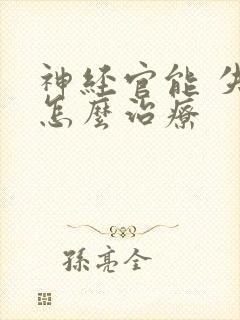 神経官能 失
怎麼治療
孫亮全